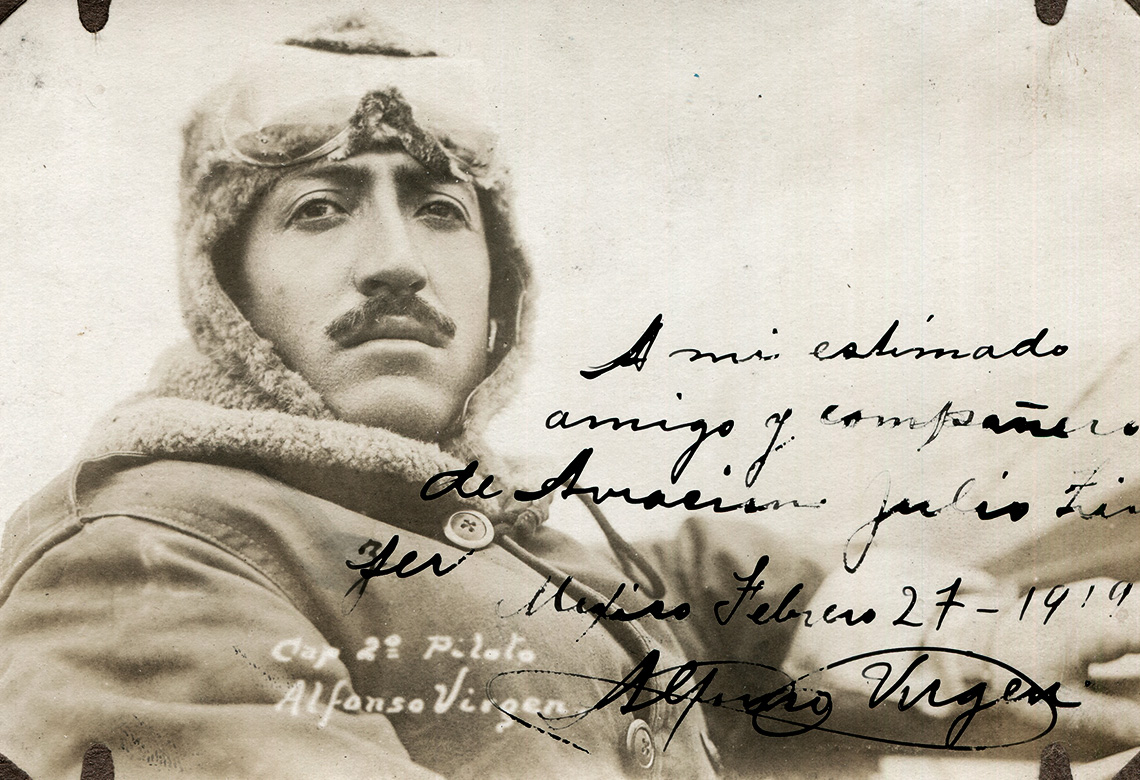 A mi estimado
amigo y compañero
de Aviacion Julio
Mexico Febrero 27-1919
Alfonso Virgen
Cap 2º Piloto
Alfonso Virgen